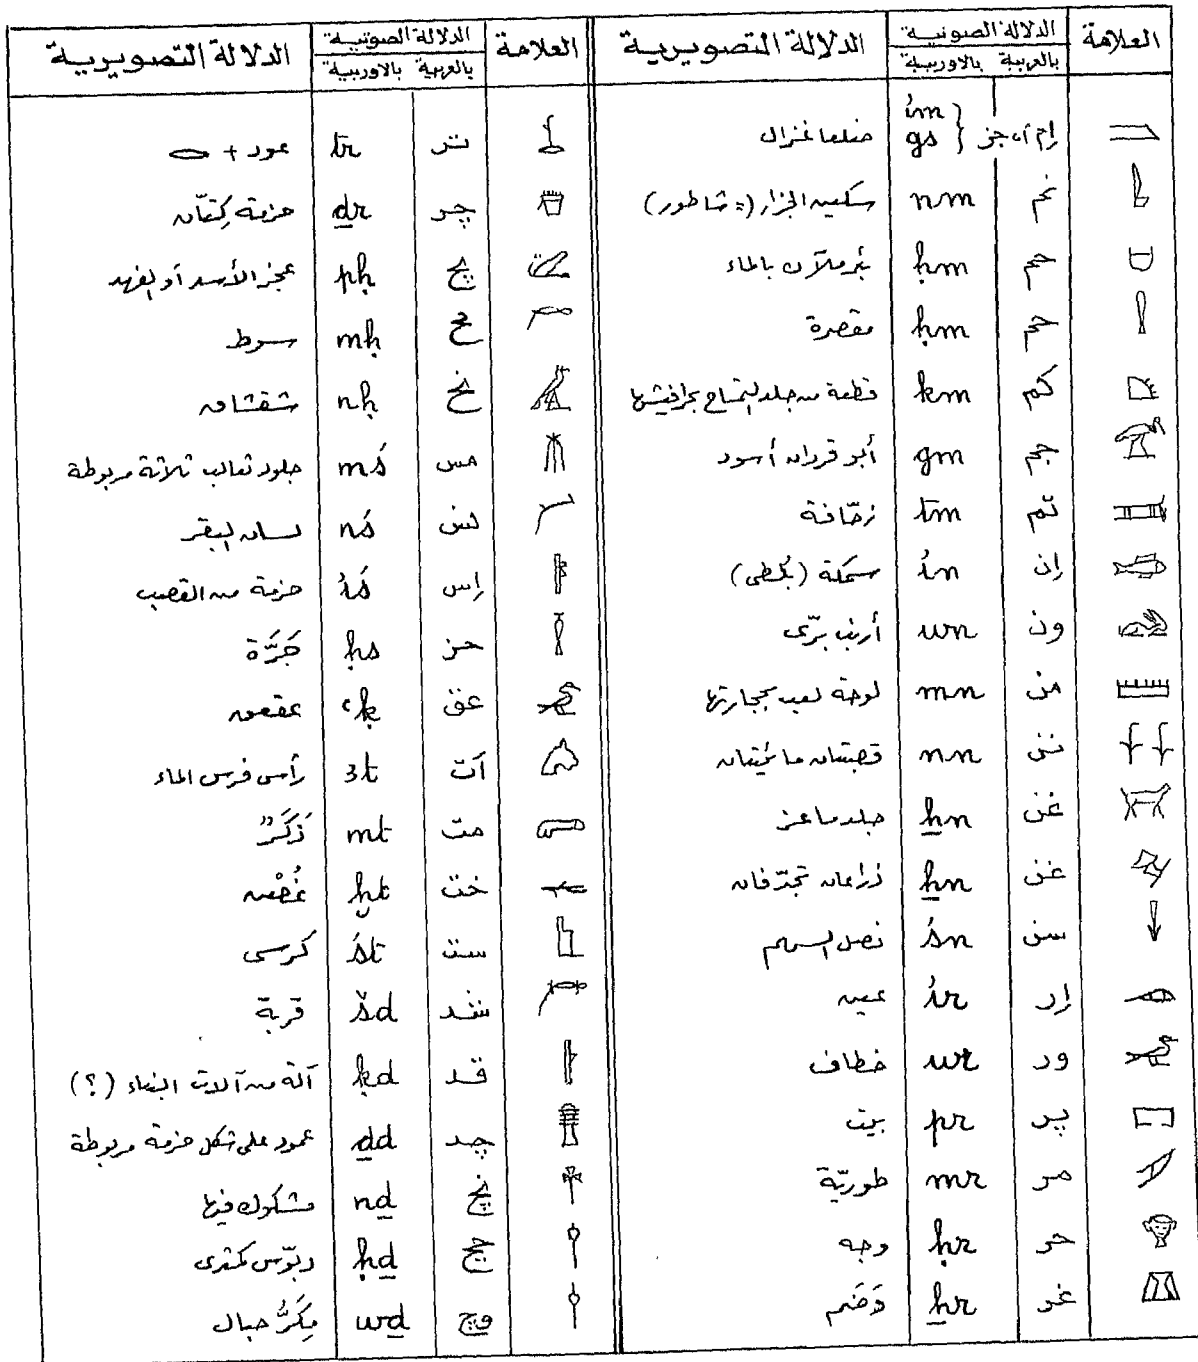 العلامة الدلالة الصوتية الدلالة التصويرية
بالعربية بالاوربية
إم أو جز } ỉm gs ضلعا غزال
نم nm سكين الجزار (= شاطور)
حم ḥm بئر ملآن بالماء
حم ḥm مقصرة
كم km قطعة من جلد التمساح بحرافيشها
جم gm أبو قردان أسود
تم tm زحّافة
إن ỉn سمكة (بلطى)
ون wn أرنب برّى
من mn لوحة لعب بحجارتها
نن nn قصبتان مائيتان
غن ẖn جلد ماعز
غن ẖn ذراعان تجدّفان
سن śn نصل السهم
إر ỉr عين
ور wr خطاف
پر pr بيت
مر mr طوريّة
حر ḥr وجه
غر ẖr وَضَم
العلامة الدلالة الصوتية الدلالة التصويرية
بالعربية بالاوربية
تر tr عود +
چر ḏr حزمة كِتّان
پح pḥ عجز الأسد أو الفهد
مح mḥ سوط
نح nḥ شقشاق
مس mś جلود ثعالب ثلاثة مربوطة
نس nś لسان البقر
إس ỉś حزمة من القصب
حز ḥs جَرَّة
عق ꜥḳ عقعق
أت ꜣt رأس فرس الماء
مت mt ذَكَرٌ
خت ḫt غُصْن
ست śt كرسى
شد šd قربة
قد ḳd آلة من آلات البناء (؟)
چد ḏd عمود على شكل حزمة مربوطة
نچ nḏ مشكوك فيها
حچ ḥḏ دبّوس كمثرى
وچ wḏ مِكَرُّ حبال